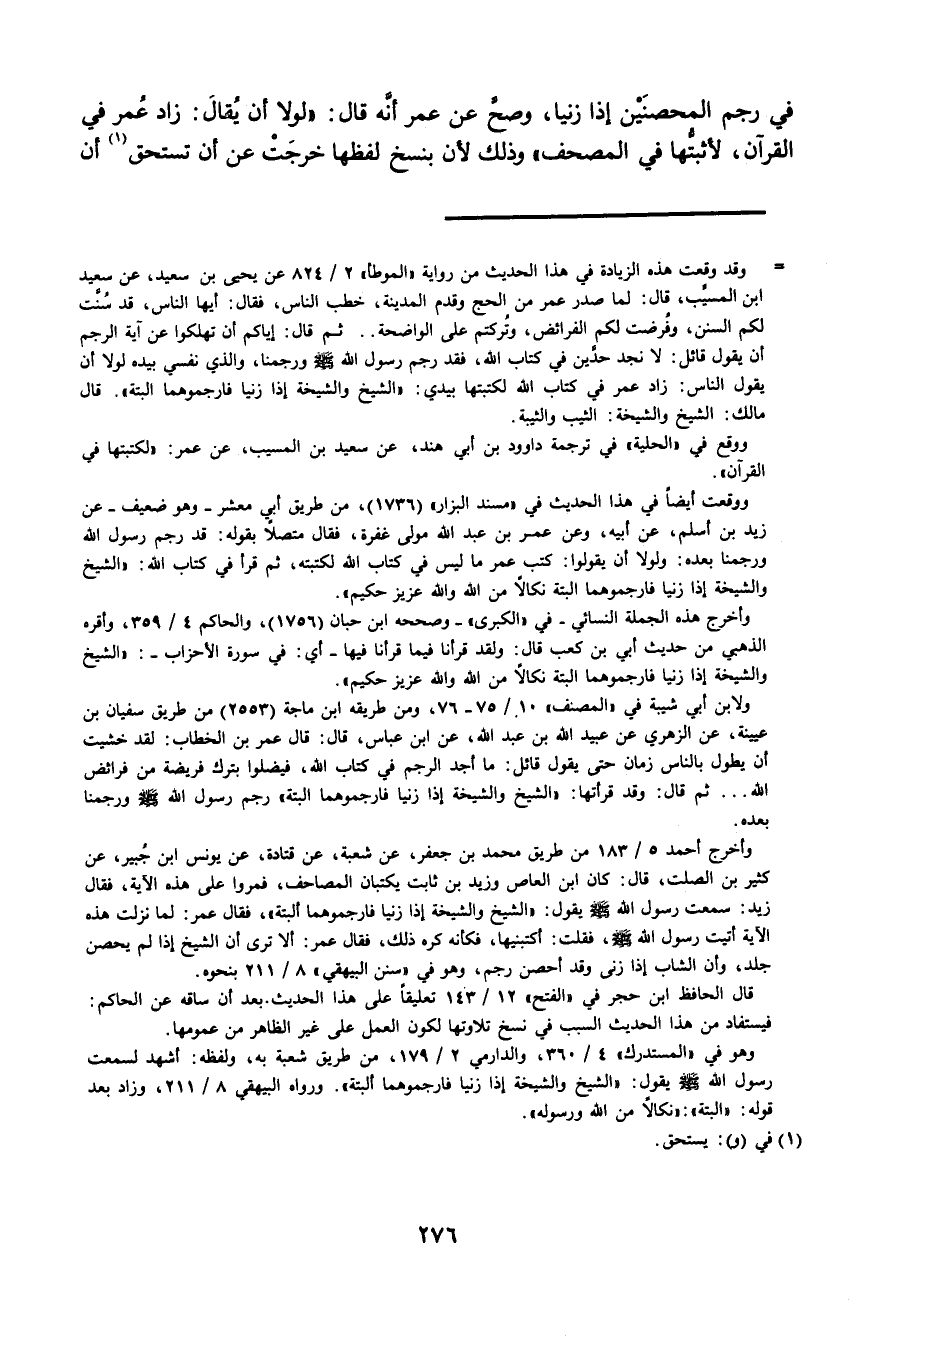 في رجم المحصنَيْن إذا زنيا، وصحَّ عن عمر أنَّه قال: «لولا أن يُقالَ: زاد عُمر في
القرآن، لأثبتُّها في المصحف» وذلك لأن بنسخ لفظها خرجَتْ عن أن تستحق(١) أن
= وقد وقعت هذه الزيادة في هذا الحديث من رواية «الموطأ» ٢ / ٨٢٤ عن يحيى بن سعيد، عن سعيد
ابن المسيَّب، قال: لما صدر عمر من الحج وقدم المدينة، خطب الناس، فقال: أيها الناس، قد سُنَّت
لكم السنن، وفُرضت لكم الفرائض، وتُركتم على الواضحة.. ثم قال: إياكم أن تهلكوا عن آية الرجم
أن يقول قائل: لا نجد حدَّين في كتاب الله، فقد رجم رسول الله ﷺ ورجمنا، والذي نفسي بيده لولا أن
يقول الناس: زاد عمر في كتاب الله لكتبتها بيدي: «الشيخ والشيخة إذا زنيا فارجموهما البتة». قال
مالك: الشيخ والشيخة: الثيب والثيبة.
ووقع في «الحلية» في ترجمة داوود بن أبي هند، عن سعيد بن المسيب، عن عمر: «لكتبتها في
القرآن».
ووقعت أيضاً في هذا الحديث في «مسند البزار» (١٧٣٦)، من طريق أبي معشر ـ وهو ضعيف ـ عن
زيد بن أسلم، عن أبيه، وعن عمر بن عبد الله مولى غفرة، فقال متصلاً بقوله: قد رجم رسول الله
ورجمنا بعده: ولولا أن يقولوا: كتب عمر ما ليس في كتاب الله لكتبته، ثم قرأ في كتاب الله: «الشيخ
والشيخة إذا زنيا فارجموهما البتة نكالاً من الله والله عزيز حكيم».
وأخرج هذه الجملة النسائي ـ في «الكبرى» ـ وصححه ابن حبان (١٧٥٦)، والحاكم ٤ / ٣٥٩، وأقره
الذهبي من حديث أبي بن كعب قال: ولقد قرأنا فيما قرأنا فيها ـ أي: في سورة الأحزاب ـ: «الشيخ
والشيخة إذا زنيا فارجموهما البتة نكالاً من الله والله عزيز حكيم».
ولابن أبي شيبة في «المصنف» ١٠ / ٧٥ ـ ٧٦، ومن طريقه ابن ماجة (٢٥٥٣) من طريق سفيان بن
عيينة، عن الزهري عن عبيد الله بن عبد الله، عن ابن عباس، قال: قال عمر بن الخطاب: لقد خشيت
أن يطول بالناس زمان حتى يقول قائل: ما أجد الرجم في كتاب الله، فيضلوا بترك فريضة من فرائض
الله... ثم قال: وقد قرأتها: «الشيخ والشيخة إذا زنيا فارجموهما البتة» رجم رسول الله ﷺ ورجمنا
بعده.
وأخرج أحمد ٥ / ١٨٣ من طريق محمد بن جعفر، عن شعبة، عن قتادة، عن يونس ابن جُبير، عن
كثير بن الصلت، قال: كان ابن العاص وزيد بن ثابت يكتبان المصاحف، فمروا على هذه الآية، فقال
زيد: سمعت رسول الله ﷺ يقول: «الشيخ والشيخة إذا زنيا فارجموهما ألبتة»، فقال عمر: لما نزلت هذه
الآية أتيت رسول الله ﷺ، فقلت: أكتبنيها، فكأنه كره ذلك، فقال عمر: ألا ترى أن الشيخ إذا لم يحصن
جلد، وأن الشاب إذا زنى وقد أحصن رجم، وهو في «سنن البيهقي» ٨ / ٢١١ بنحوه.
قال الحافظ ابن حجر في «الفتح» ١٢ / ١٤٣ تعليقاً على هذا الحديث.بعد أن ساقه عن الحاكم:
فيستفاد من هذا الحديث السبب في نسخ تلاوتها لكون العمل على غير الظاهر من عمومها.
وهو في «المستدرك» ٤ / ٣٦٠، والدارمي ٢ / ١٧٩، من طريق شعبة به، ولفظه: أشهد لسمعت
رسول الله ﷺ يقول: «الشيخ والشيخة إذا زنيا فارجموهما ألبتة». ورواه البيهقي ٨ / ٢١١، وزاد بعد
قوله: «البتة»:«نكالاً من الله ورسوله».
(١) في (و): يستحق.
٢٧٦